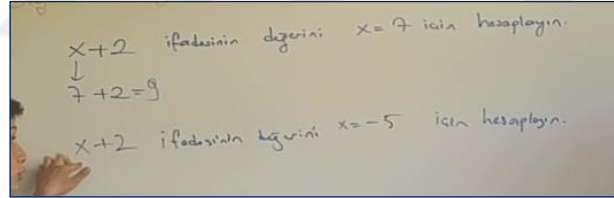 x+2 ifadesinin değerini x=7 için hesaplayın.
↓
7+2=9
x+2 ifadesinin değerini x=-5 için hesaplayın.